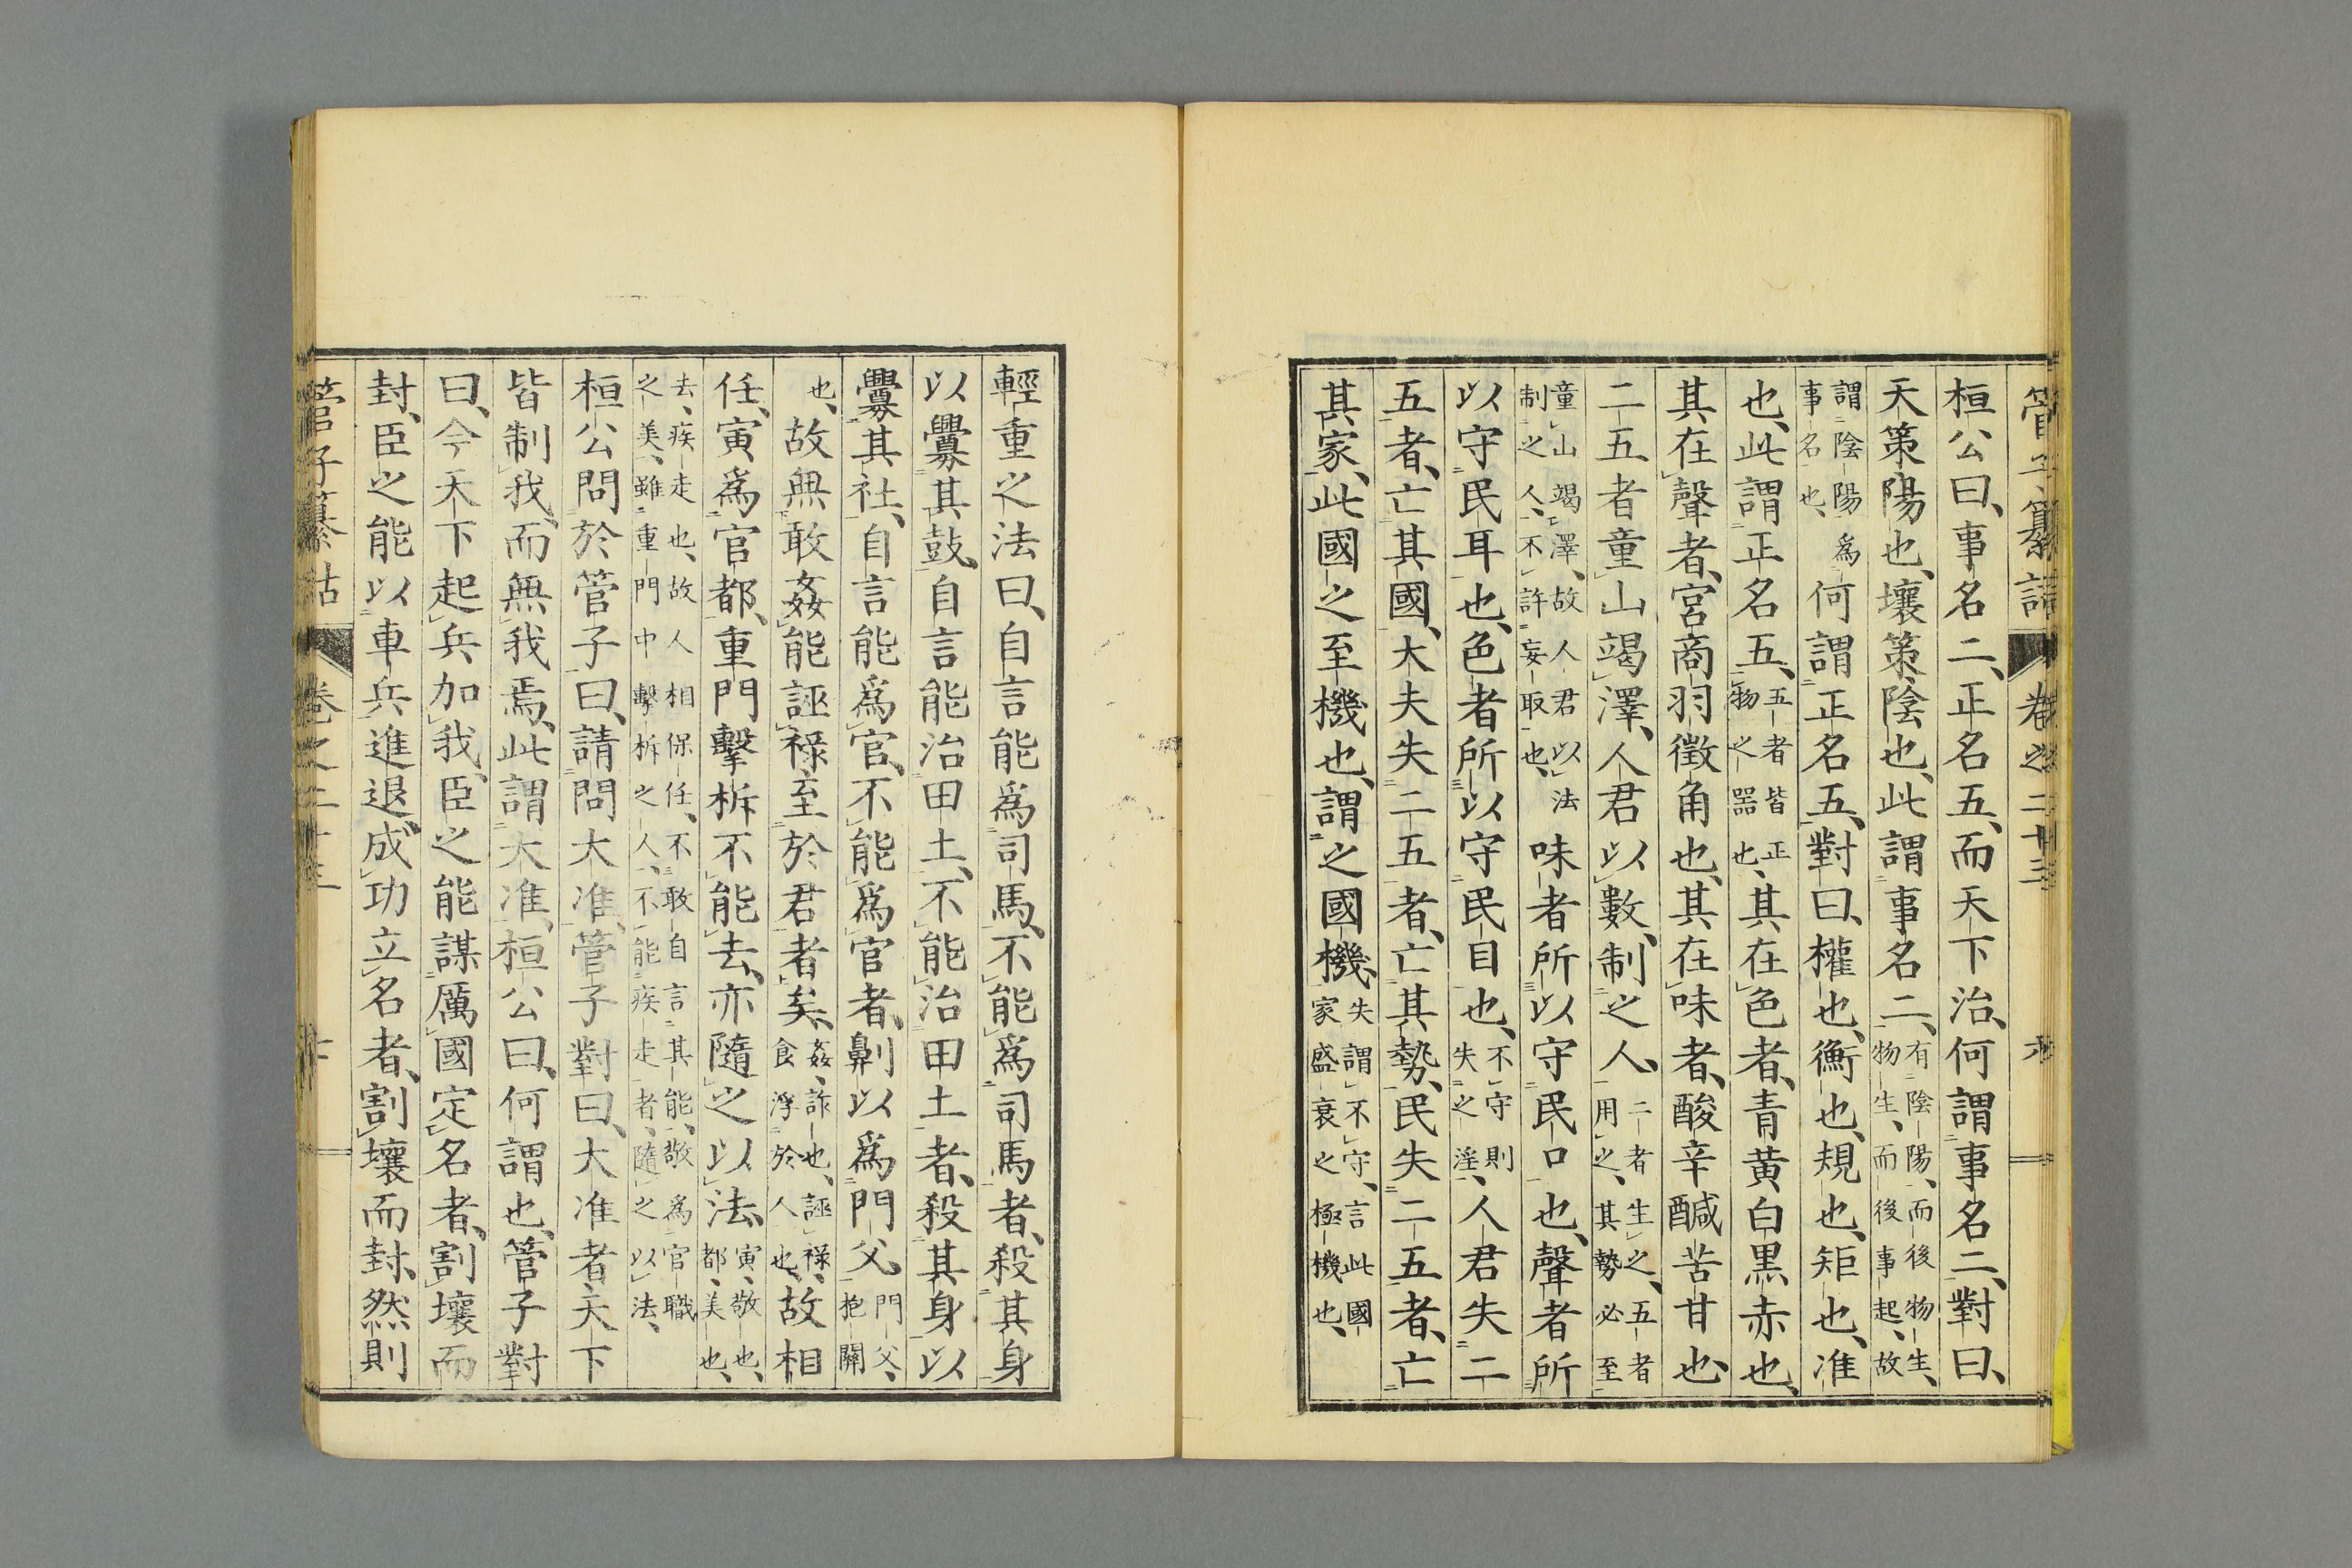 管子纂詁 卷之二十三
桓公曰、事名二、正名五、而天下治、何謂事名二、對曰、
天策陽也、壤策陰也、此謂事名二、有陰陽、而後物生、物生、而後事起、故
謂陰陽爲事名也、何謂正名五、對曰、權也、衡也、規也、矩也、准
也、此謂正名五、五者皆正物之器也、其在色者、青黄白黒赤也、
其在聲者、宮商羽徵角也、其在味者、酸辛鹹苦甘也、
二五者童山竭澤、人君以數制之人、二者生之、五者用之、其勢必至
童山竭澤、故人君以法制之人、不許妄取也、味者所以守民口也、聲者所
以守民耳也、色者所以守民目也、不守則失之淫、人君失二
五者、亡其國、大夫失二五者、亡其勢、民失二五者、亡
其家、此國之至機也、謂之國機、失謂不守、言此國家盛衰之極機也、
輕重之法曰、自言能爲司馬、不能爲司馬者、殺其身
以釁其鼓、自言能治田土、不能治田土者、殺其身以
釁其社、自言能爲官、不能爲官者、劓以爲門父、門父、抱關
也、故無敢姦能誣祿至於君者矣、姦、詐也、誣祿、食浮於人也、故相
任、寅爲官都、重門擊柝不能去、亦隨之以法、寅、敬也、都、美也、
去、疾走也、故人相保任、不敢自言其能、敬爲官職之美、雖重門中擊柝之人、不能疾走者、隨之以法、
桓公問於管子曰、請問大准、管子對曰、大准者、天下
皆制我、而無我焉、此謂大准、桓公曰、何謂也、管子對
曰、今天下起兵加我、臣之能謀厲國定名者、割壤而
封、臣之能以車兵進退、成功立名者、割壤而封、然則
管子纂詁 卷之二十三